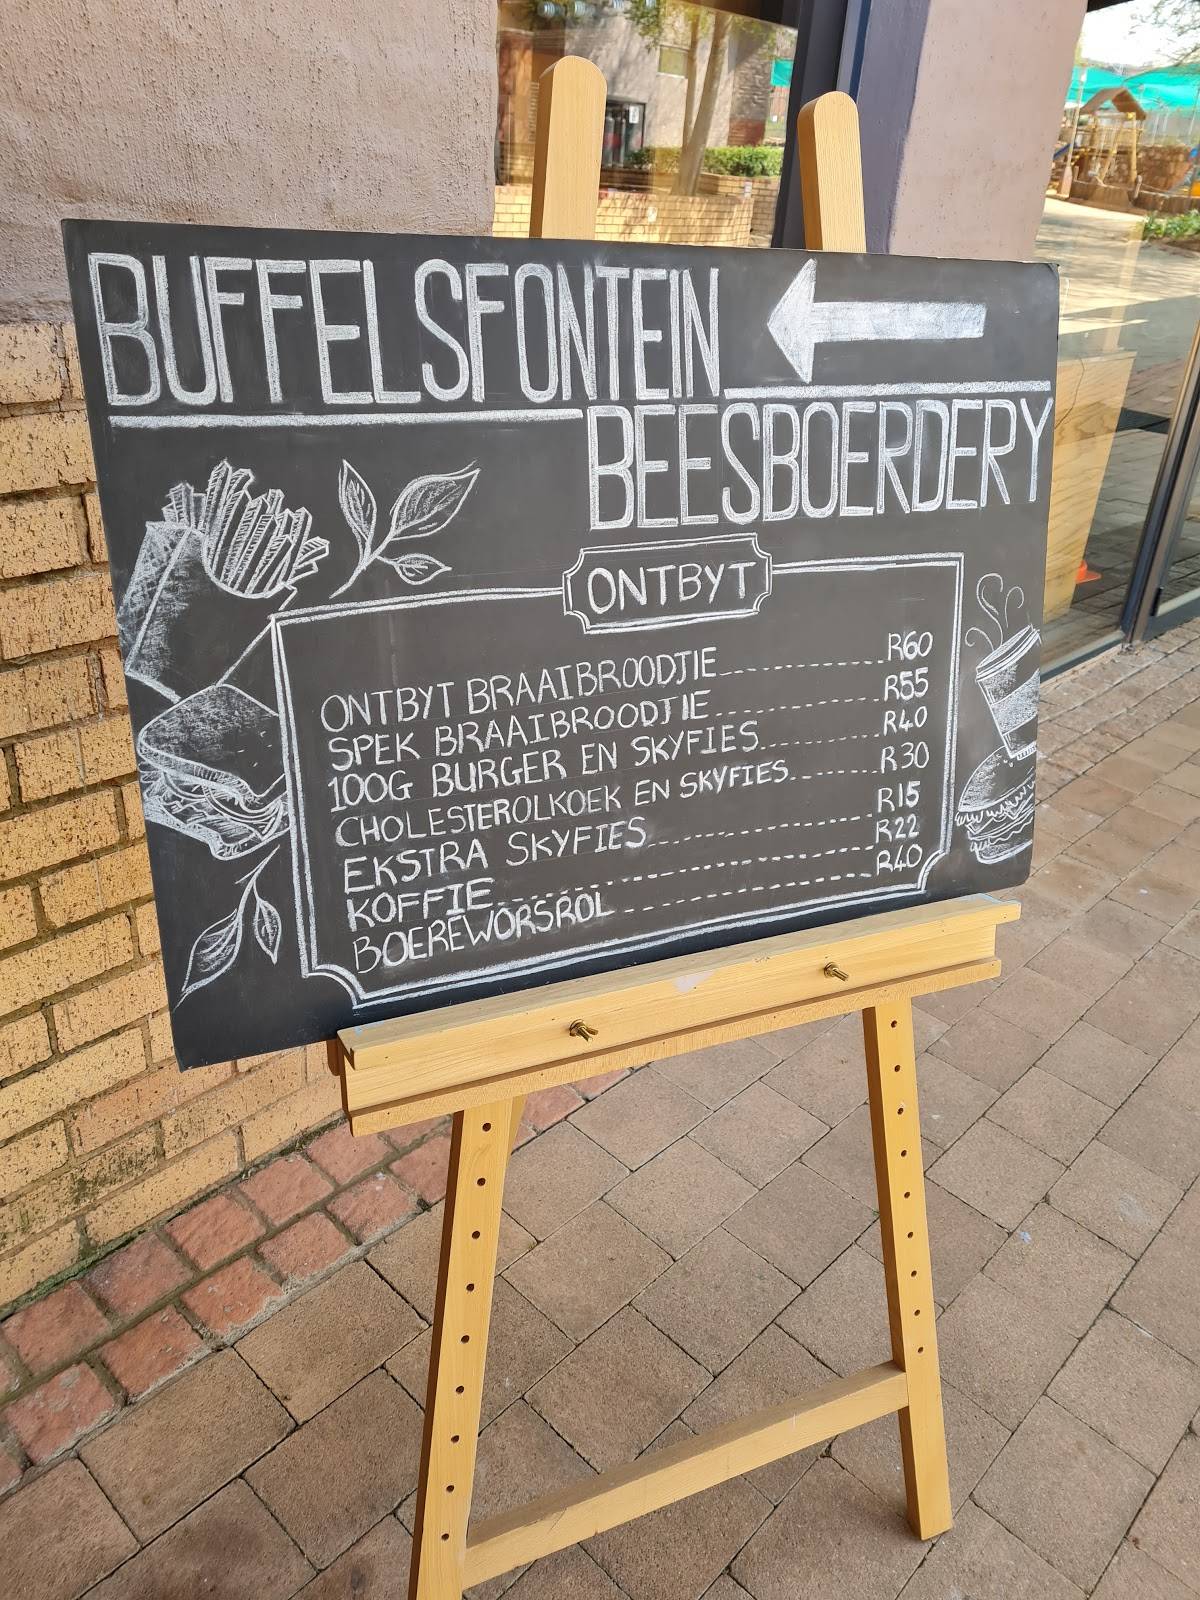 BUFFELSFONTEIN
BEESBOERDERY
ONTBYT
ONTBYT BRAAIBROODJIE R60
SPEK BRAAIBROODJIE R55
100G BURGER EN SKYFIES R40
CHOLESTEROLKOEK EN SKYFIES R30
EKSTRA SKYFIES R15
KOFFIE R22
BOEREWORSROL R40